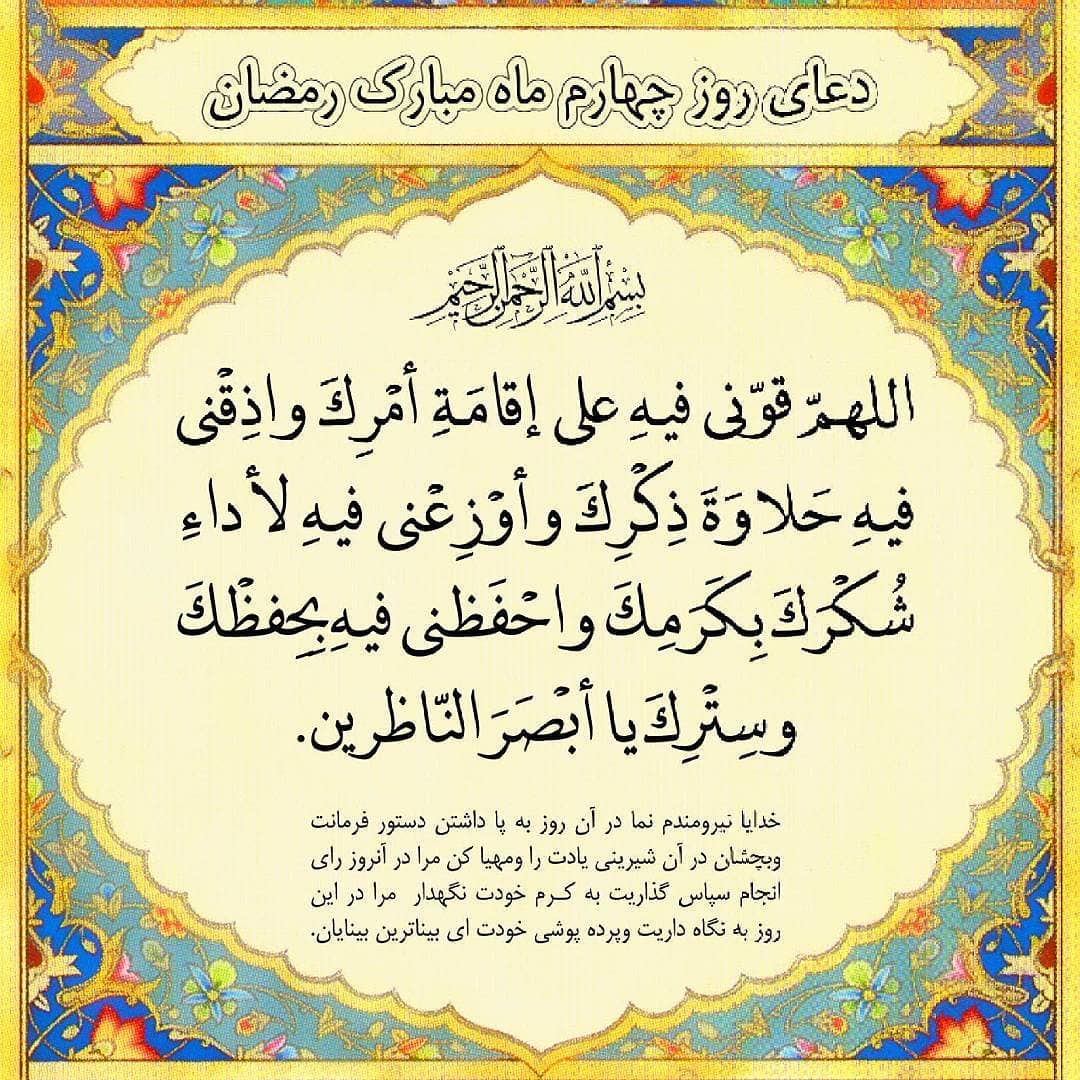 دعای روز چهارم ماه مبارک رمضان
بِسْمِ اللَّهِ الرَّحْمَنِ الرَّحِيمِ
اللهمّ قوّنی فیهِ علی إقامَةِ أمْرِكَ واذِقْنی
فیهِ حَلاوَةَ ذِكْرِكَ وأوْزِعْنی فیهِ لأداءِ
شُكْرَكَ بِكَرَمِكَ واحْفَظنی فیهِ بِحِفظْكَ
وسِتْرِكَ یا أبْصَرَ النّاظرین.
خدایا نیرومندم نما در آن روز به پا داشتن دستور فرمانت
وبچشان در آن شیرینی یادت را ومهیا کن مرا در آنروز رای
انجام سپاس گذاریت به کـرم خودت نگهدار مرا در این
روز به نگاه داریت وپرده پوشی خودت ای بیناترین بینایان.